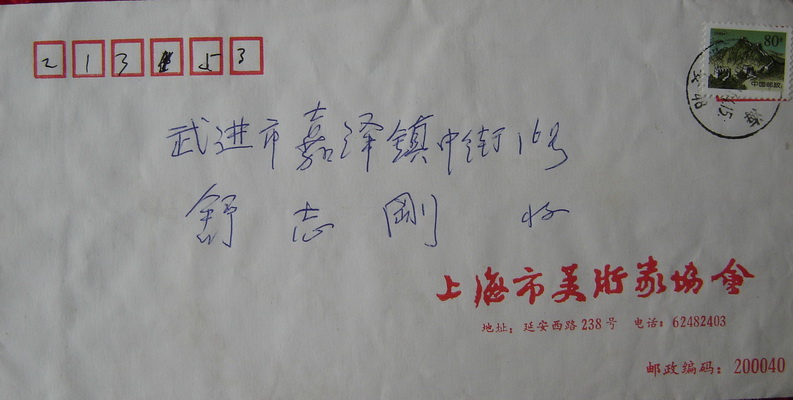 2 1 3 5 3
80分
中国邮政
海
武进市嘉泽镇中街16号
舒志剛 收
上海市美術家協會
地址：延安西路238号 电话：62482403
邮政编码：200040